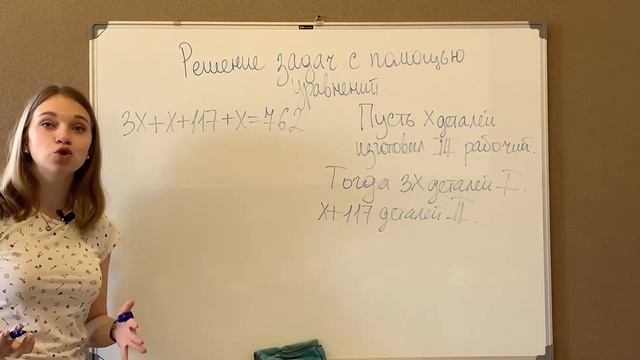 Решение задач с помощью
уравнений.
3х+х+117+х=762
Пусть х деталей
изготовил III рабочий.
Тогда 3х деталей - I.
х+117 деталей - II.